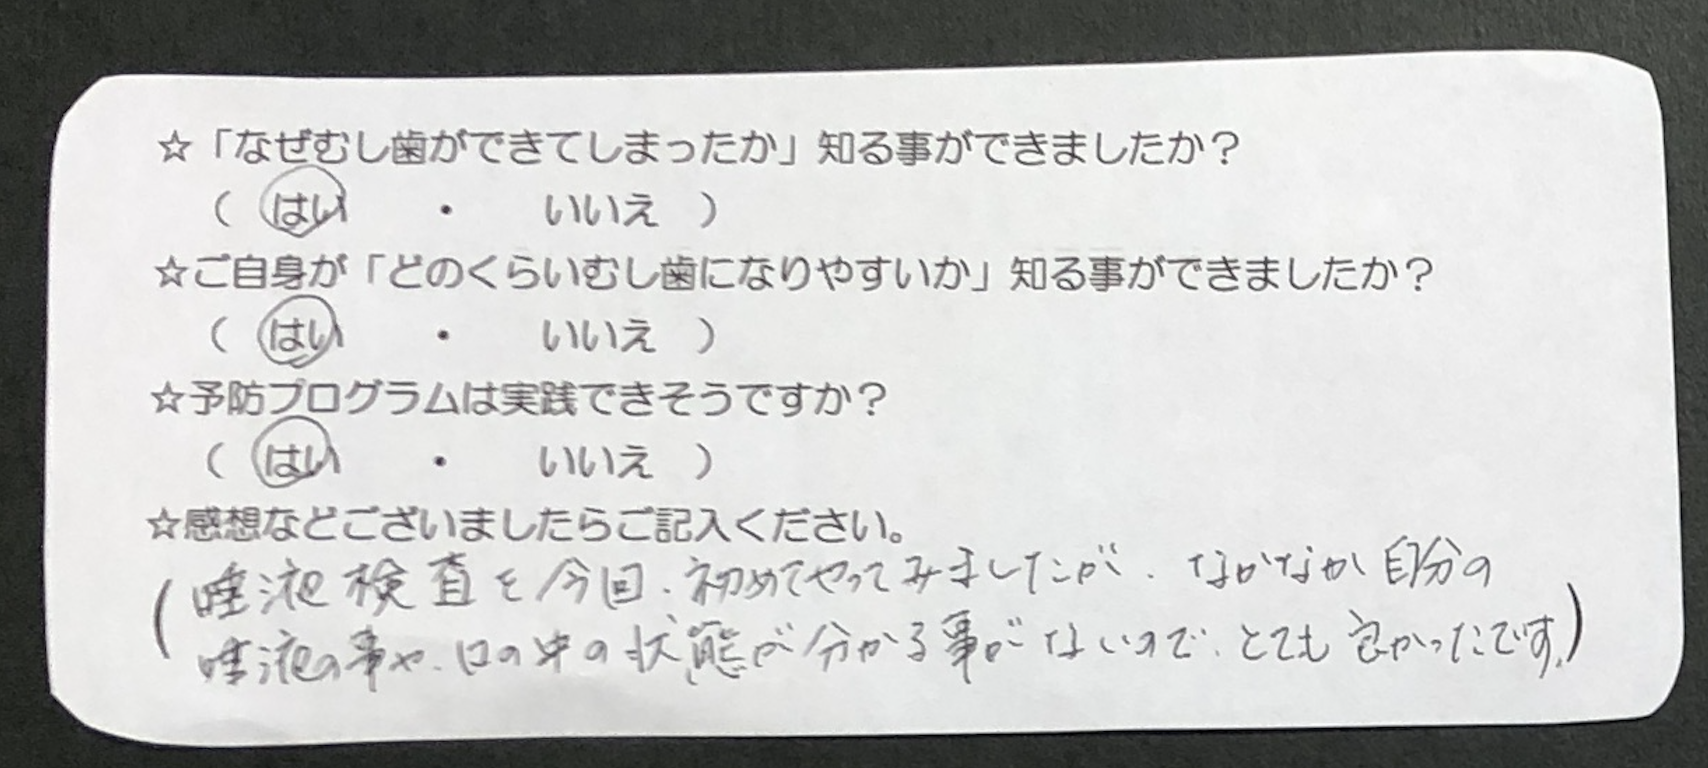 ☆「なぜむし歯ができてしまったか」知る事ができましたか？
（ はい ・ いいえ ）
☆ご自身が「どのくらいむし歯になりやすいか」知る事ができましたか？
（ はい ・ いいえ ）
☆予防プログラムは実践できそうですか？
（ はい ・ いいえ ）
☆感想などございましたらご記入ください。
（唾液検査を今回、初めてやってみましたが、なかなか自分の
唾液の事や、口の中の状態が分かる事がないので、とても良かったです。）